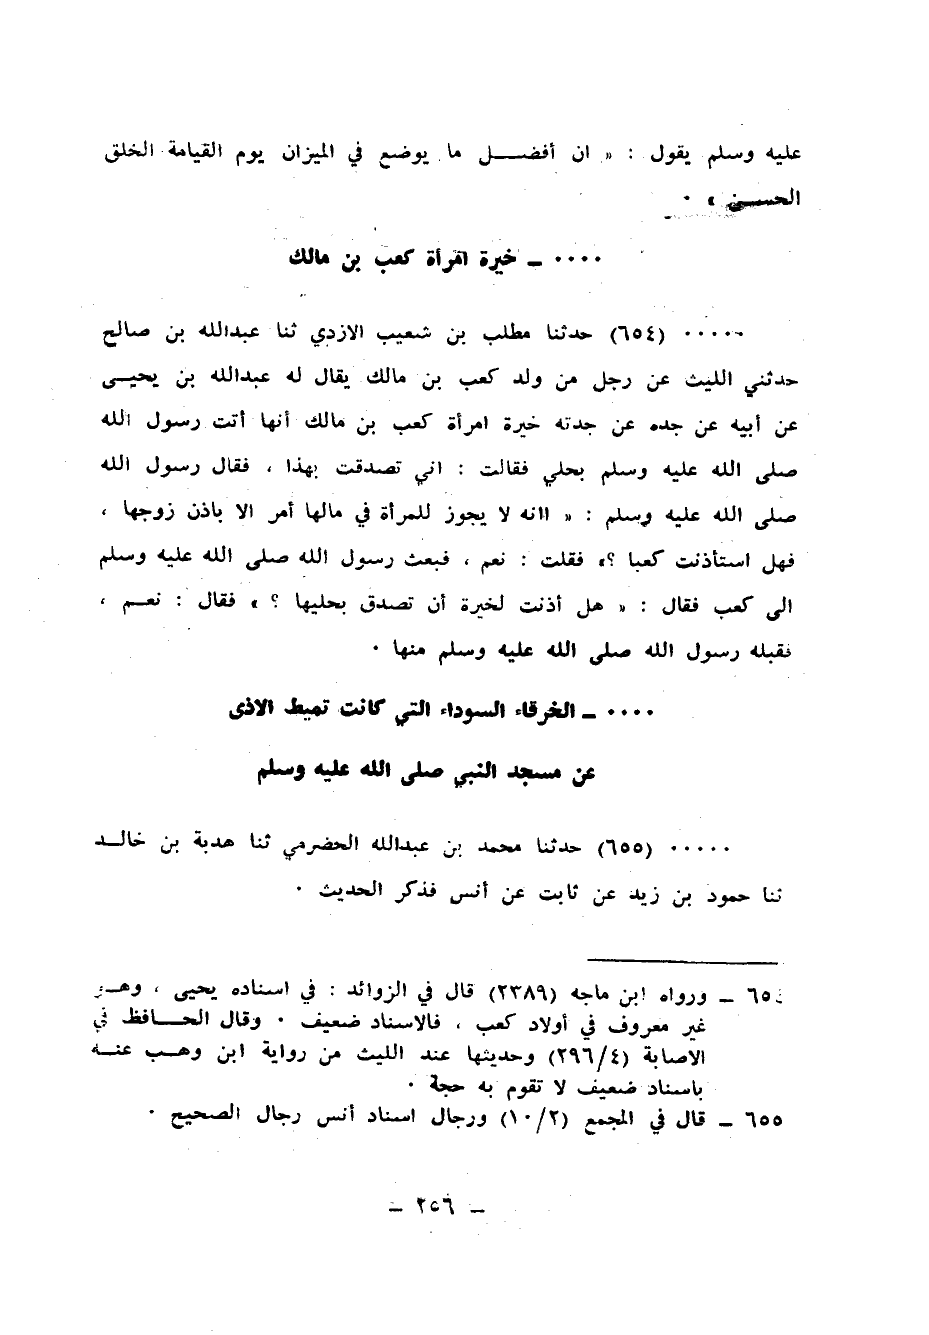 عليه وسلم يقول : « ان أفضــل ما يوضع في الميزان يوم القيامة الخلق
الحسـن » ٠
٠٠٠٠ ــ خيرة امرأة كعب بن مالك
٠٠٠٠٠ (٦٥٤) حدثنا مطلب بن شعيب الازدي ثنا عبدالله بن صالح
حدثني الليث عن رجل من ولد كعب بن مالك يقال له عبدالله بن يحيــى
عن أبيه عن جده عن جدته خيرة امرأة كعب بن مالك أنها أتت رسول الله
صلى الله عليه وسلم بحلي فقالت : اني تصدقت بهذا ، فقال رسول الله
صلى الله عليه وسلم : « اانه لا يجوز للمرأة في مالها أمر الا باذن زوجها ،
فهل استأذنت كعبا ؟» فقلت : نعم ، فبعث رسول الله صلى الله عليه وسلم
الى كعب فقال : « هل أذنت لخيرة أن تصدق بحليها ؟ » فقال : نعــم ،
فقبله رسول الله صلى الله عليه وسلم منها ٠
٠٠٠٠ ــ الخرقاء السوداء التي كانت تميط الاذى
عن مسجد النبي صلى الله عليه وسلم
٠٠٠٠٠ (٦٥٥) حدثنا محمد بن عبدالله الحضرمي ثنا هدبة بن خالــد
ثنا حمود بن زيد عن ثابت عن أنس فذكر الحديث ٠
٦٥٤ ــ ورواه ابن ماجه (٢٣٨٩) قال في الزوائد : في اسناده يحيى ، وهــو
غير معروف في أولاد كعب ، فالاسناد ضعيف ٠ وقال الحــافظ في
الاصابة (٢٩٦/٤) وحديثها عند الليث من رواية ابن وهــب عنــه
باسناد ضعيف لا تقوم به حجة ٠
٦٥٥ ــ قال في المجمع (١٠/٢) ورجال اسناد أنس رجال الصحيح ٠
ــ ٢٥٦ ــ